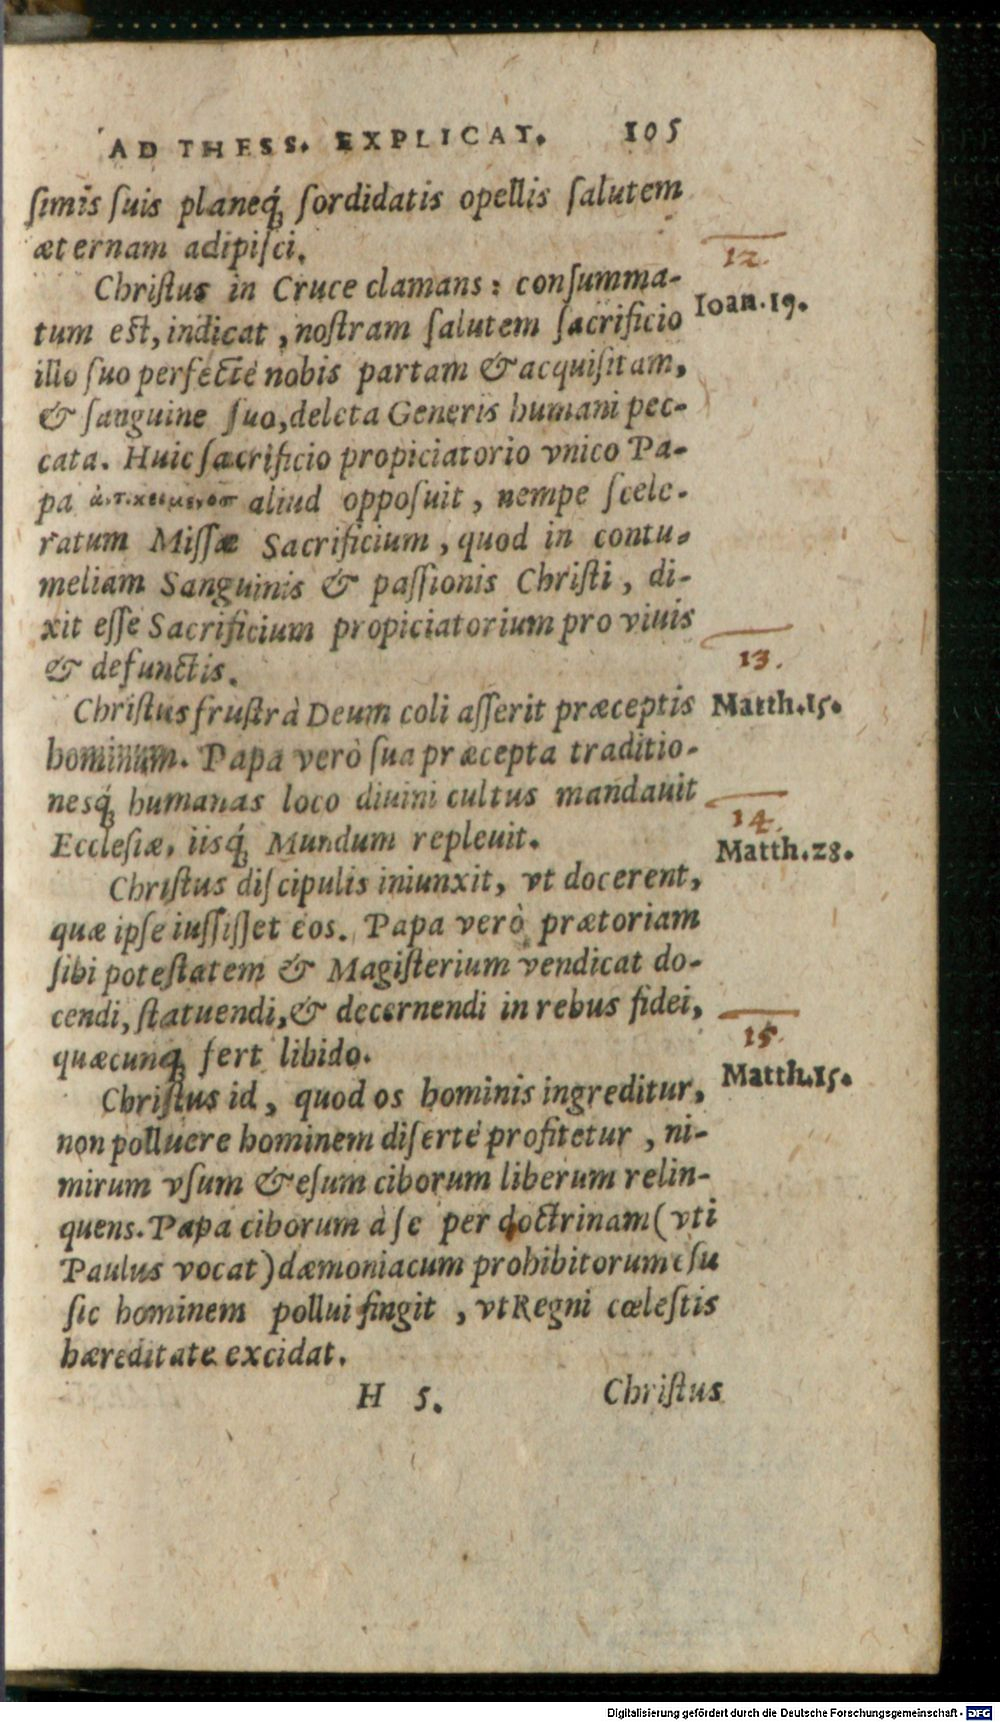 AD THESS. EXPLICAT. 105
ſimis ſuis planeq́; ſordidatis opellis ſalutem
æternam adipiſci.
12.
Chriſtus in Cruce clamans: conſumma-
Ioan.19.
tum eſt, indicat, noſtram ſalutem ſacrificio
illo ſuo perfectè nobis partam & acquiſitam,
& ſanguine ſuo, deleta Generis humani pec-
cata. Huic ſacrificio propiciatorio vnico Pa-
pa aliud oppoſuit, nempe ſcele-
ratum Miſſæ Sacrificium, quod in contu-
meliam Sanguinis & paſſionis Chriſti, di-
xit eſſe Sacrificium propiciatorium pro viuis
& defunctis.
13.
Chriſtus fruſtrà Deum coli aſſerit præceptis
Matth.15.
hominum. Papa verò ſua præcepta traditio-
nesq́; humanas loco diuini cultus mandauit
14.
Eccleſiæ, iisq́; Mundum repleuit.
Matth.28.
Chriſtus diſcipulis iniunxit, vt docerent,
quæ ipſe iuſſiſſet eos. Papa verò prætoriam
ſibi poteſtatem & Magiſterium vendicat do-
cendi, ſtatuendi, & decernendi in rebus fidei,
15.
quæcunq; fert libido.
Matth.15.
Chriſtus id, quod os hominis ingreditur,
non polluere hominem diſertè profitetur, ni-
mirum vſum & eſum ciborum liberum relin-
quens. Papa ciborum à ſe per doctrinam (vti
Paulus vocat) dæmoniacum prohibitorum eſu
ſic hominem pollui fingit, vt Regni cœleſtis
hæreditate excidat.
H 5. Chriſtus
Digitalisierung gefördert durch die Deutsche Forschungsgemeinschaft - DFG